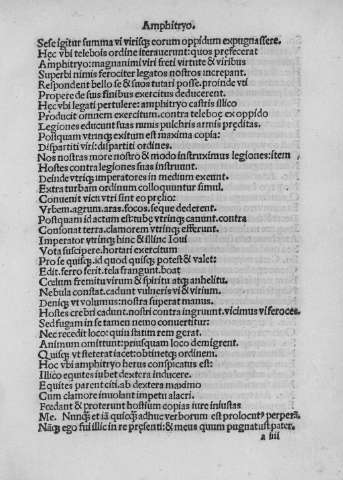 Amphitryo.
Sese igitur summa vi virisq; eorum oppidum expugnassere.
Hęc vbi telebois ordine iterauerunt: quos pręfecerat
Amphitryo: magnanimi viri freti virtute & viribus
Superbi nimis ferociter legatos nostros increpant.
Respondent bello se & suos tutari posse. proinde vti
Propere de suis finibus exercitus deducerent.
Hęc vbi legati pertulere: amphitryo castris illico
Producit omnem exercitum. contra teleboę ex oppido
Legiones educunt suas nimis pulchris armis pręditas.
Postquam vtrinq; exitum est maxima copia:
Dispartiti viri: dispartiti ordines.
Nos nostras more nostro & modo instruximus legiones: item
Hostes contra legiones suas instruunt.
Deinde vtriq; imperatores in medium exeunt.
Extra turbam ordinum colloquuntur simul.
Conuenit victi vtri sint eo prelio:
Vrbem. agrum. aras. focos. seque dederent.
Postquam id actum est: tubę vtrinq; canunt. contra
Consonat terra. clamorem vtrinq; efferunt.
Imperator vtrinq; hinc & illinc Ioui
Vota suscipere. hortari exercitum
Pro se quisq;. id quod quisq; potest & valet:
Edit. ferro ferit. tela frangunt. boat
Cœlum fremitu virum & spiritu atq; anhelitu.
Nebula constat. cadunt vulneris vi & virium.
Deniq; vt volumus: nostra superat manus.
Hostes crebri cadunt. nostri contra ingruunt. vicimus vi feroces.
Sed fugam in se tamen nemo conuertitur:
Nec recedit loco: quin statim rem gerat.
Animom omittunt: priusquam loco demigrent.
Quisq; vt steterat iacet: obtinetq; ordinem.
Hoc vbi amphitryo herus conspicatus est:
Illico equites iubet dextera inducere.
Equites parent citi. ab dextera maximo
Cum clamore inuolant impetu alacri.
Fœdant & proterunt hostium copias iure iniustas
Me. Nunq̃ et iã quicq̃ adhuc verborum est prolocutꝰ perperã.
Nãq; ego fui illic in re pręsenti: & meus quum pugnatũst pater.
a iiii